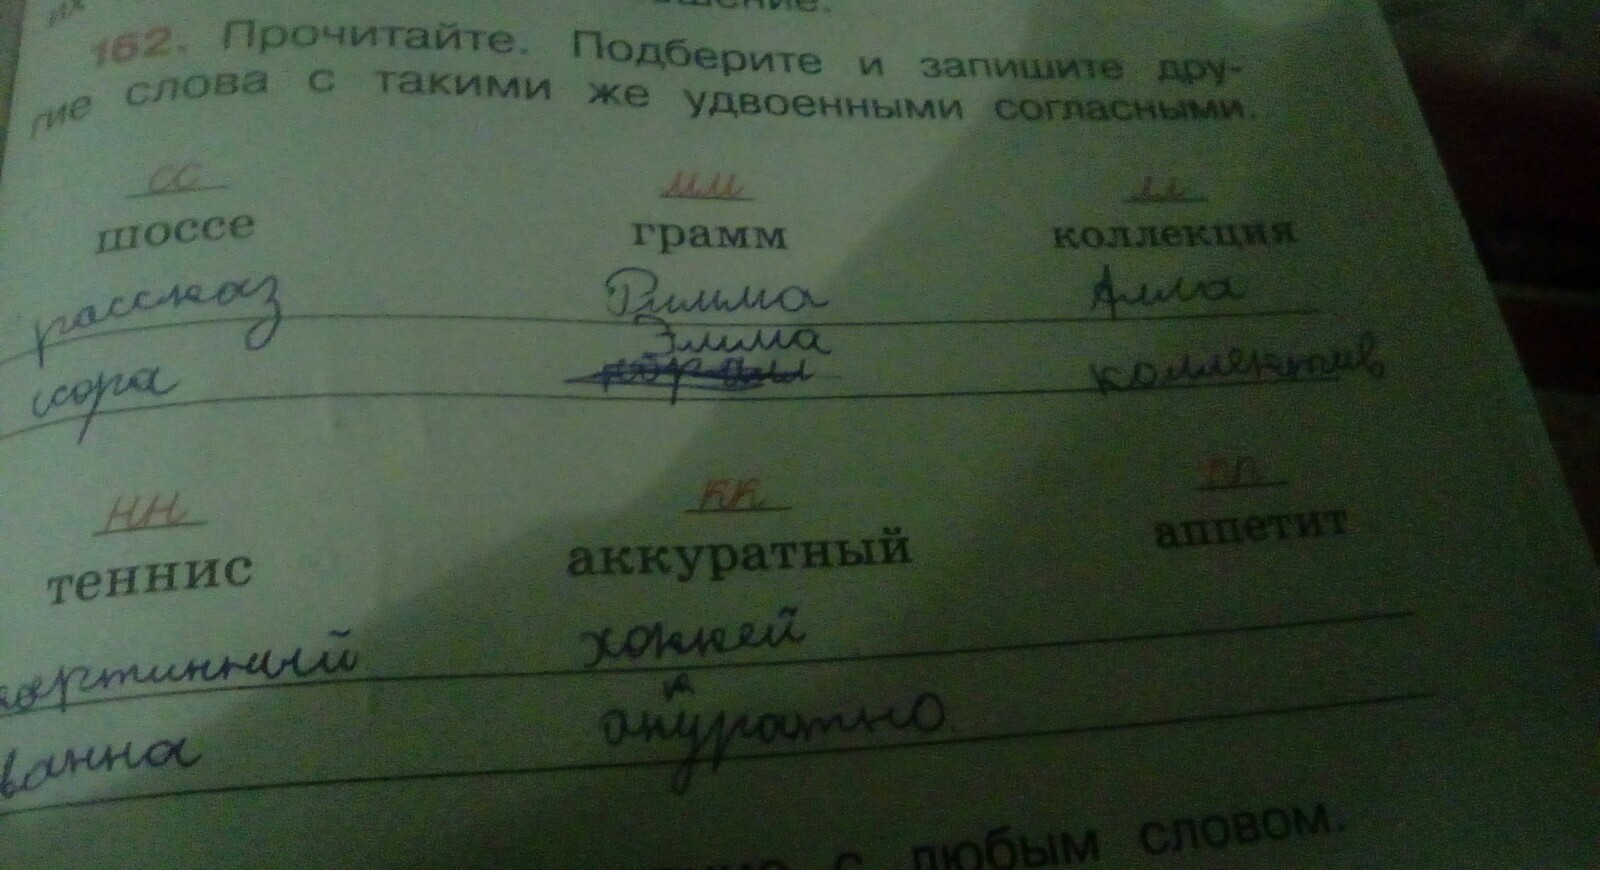 их шение.
162. Прочитайте. Подберите и запишите дру-
гие слова с такими же удвоенными согласными.
сс мм лл
шоссе грамм коллекция
рассказ Римма Алла
Эмма
ссора коллектив
нн кк пп
теннис аккуратный аппетит
картинный хоккей
к
ванна акуратно.
с любым словом.